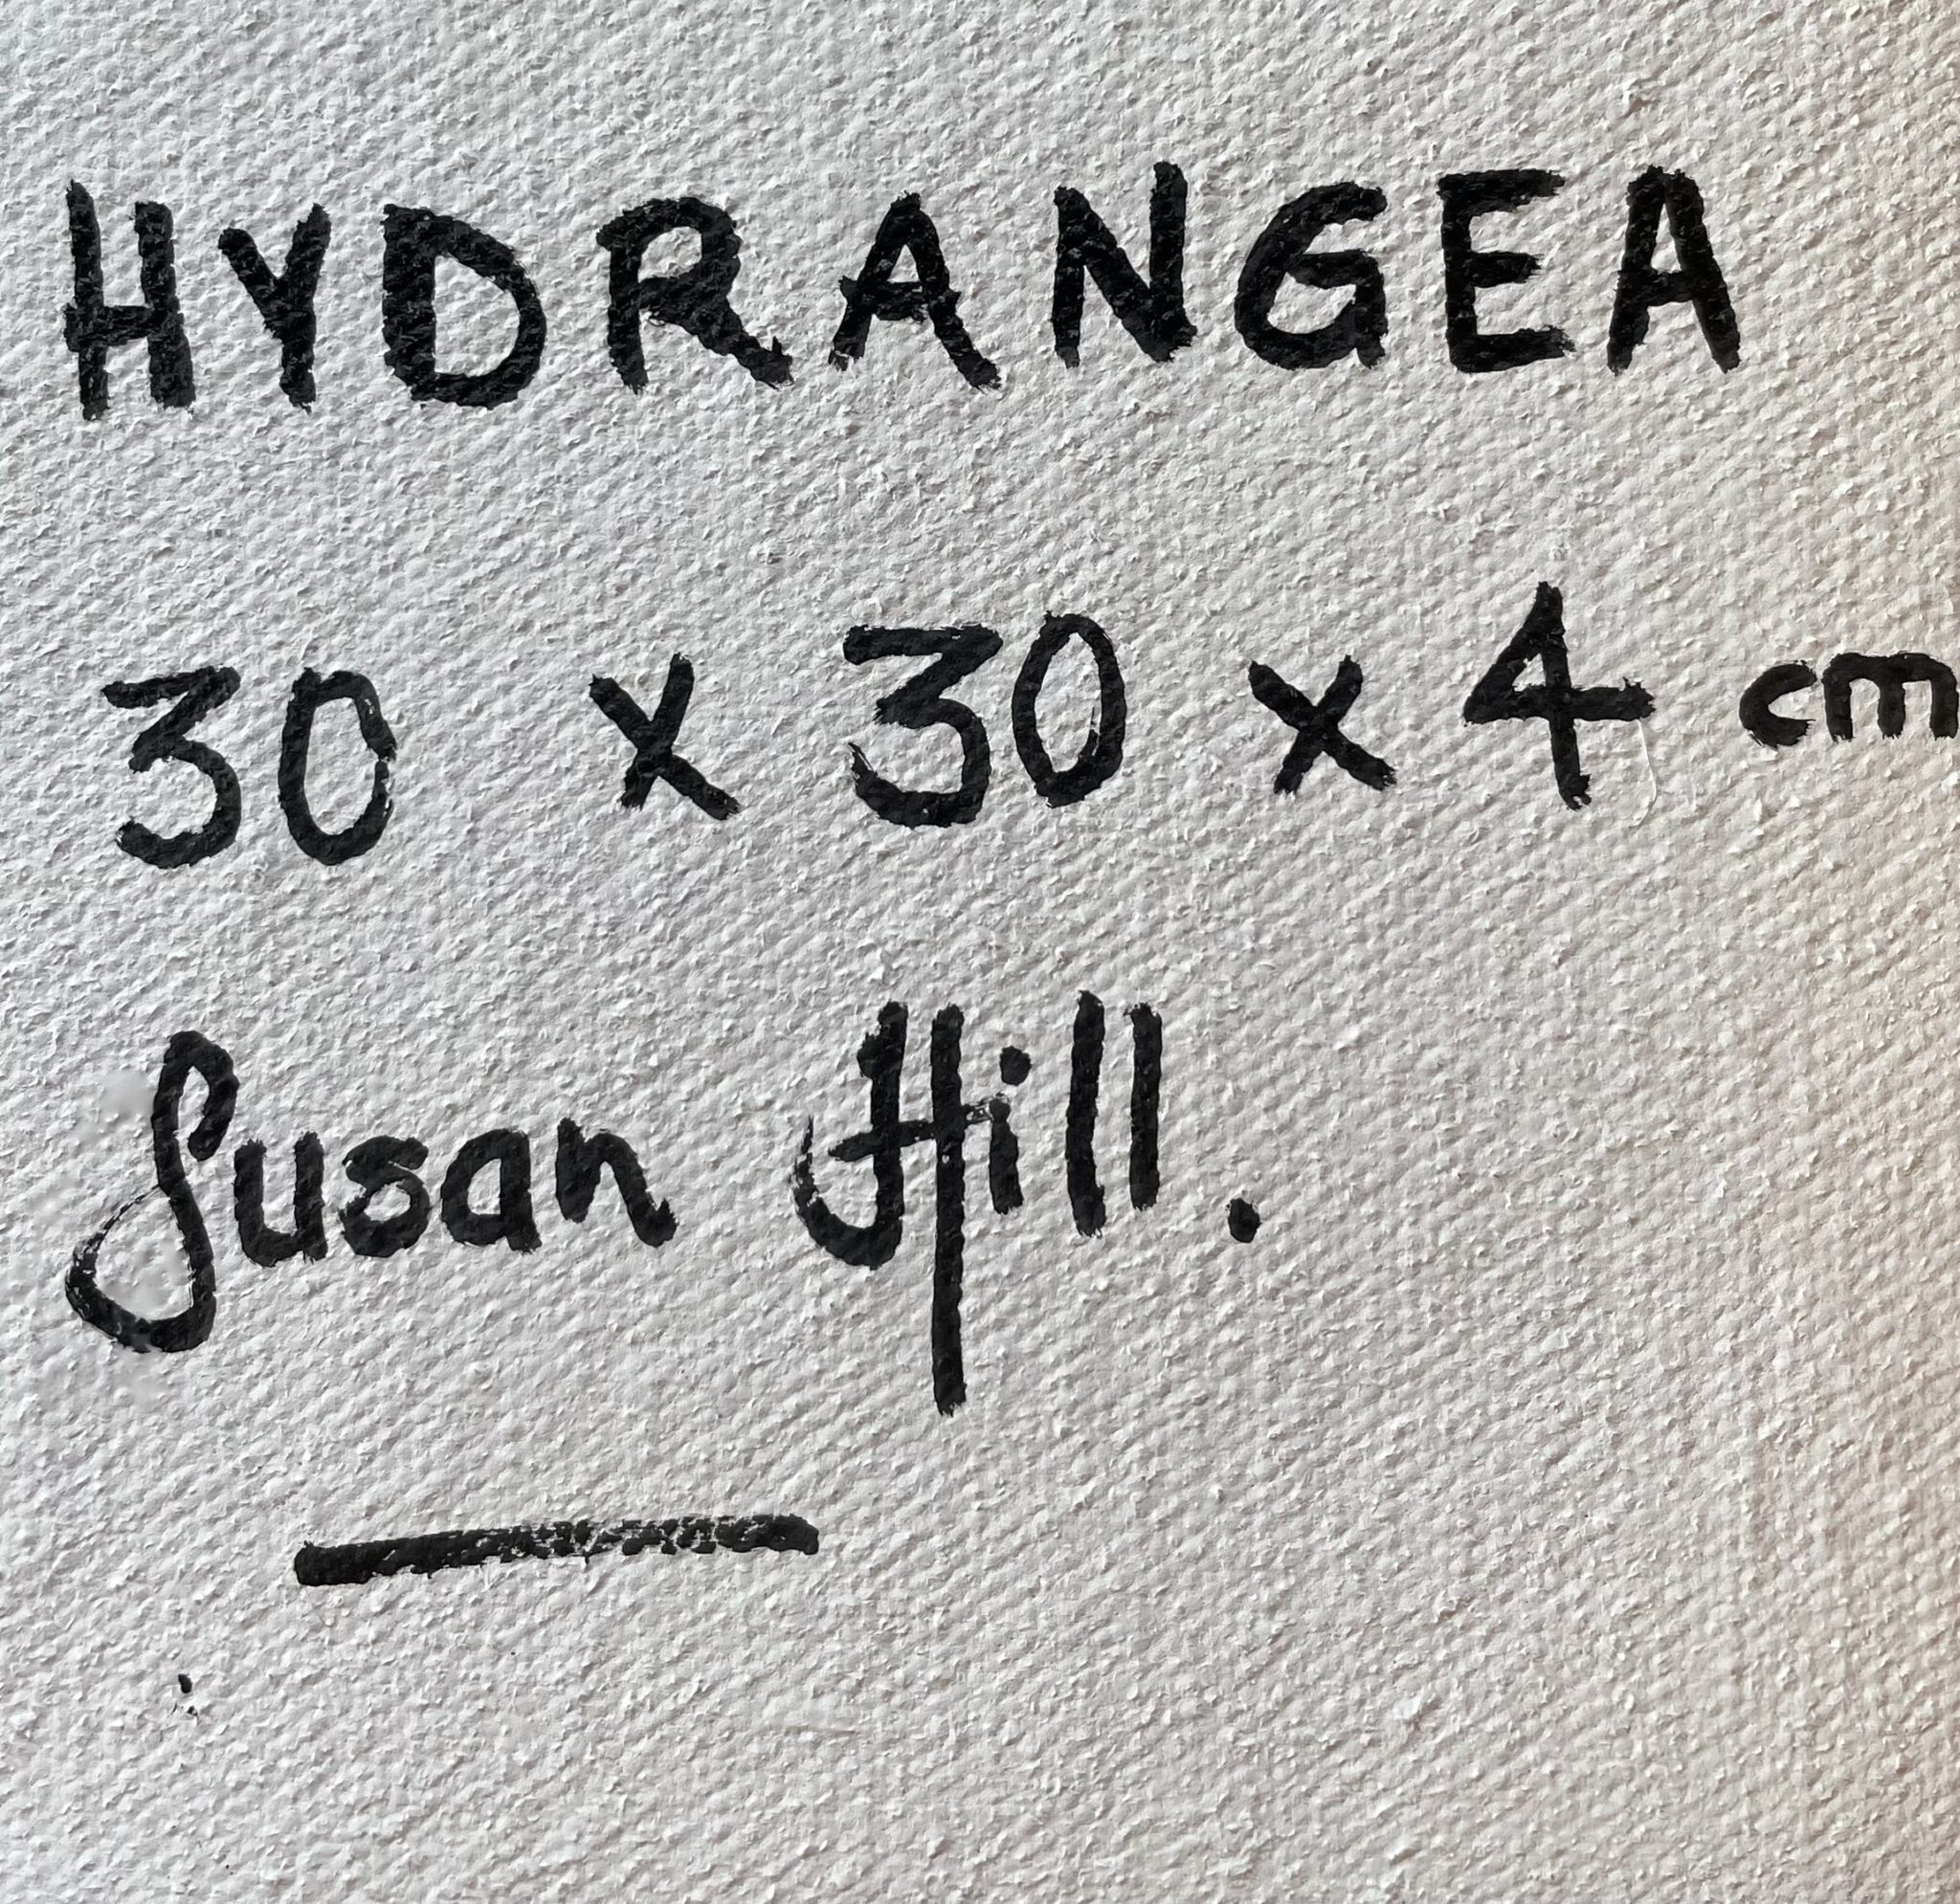 HYDRANGEA
30 x 30 x 4 cm
Susan Hill.